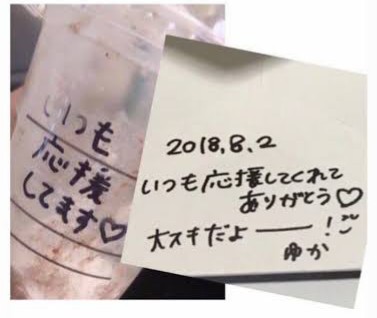 いつも
応援
してます♡
2018.8.2
いつも応援してくれて
ありがとう♡
大スキだよ――!
ゆか